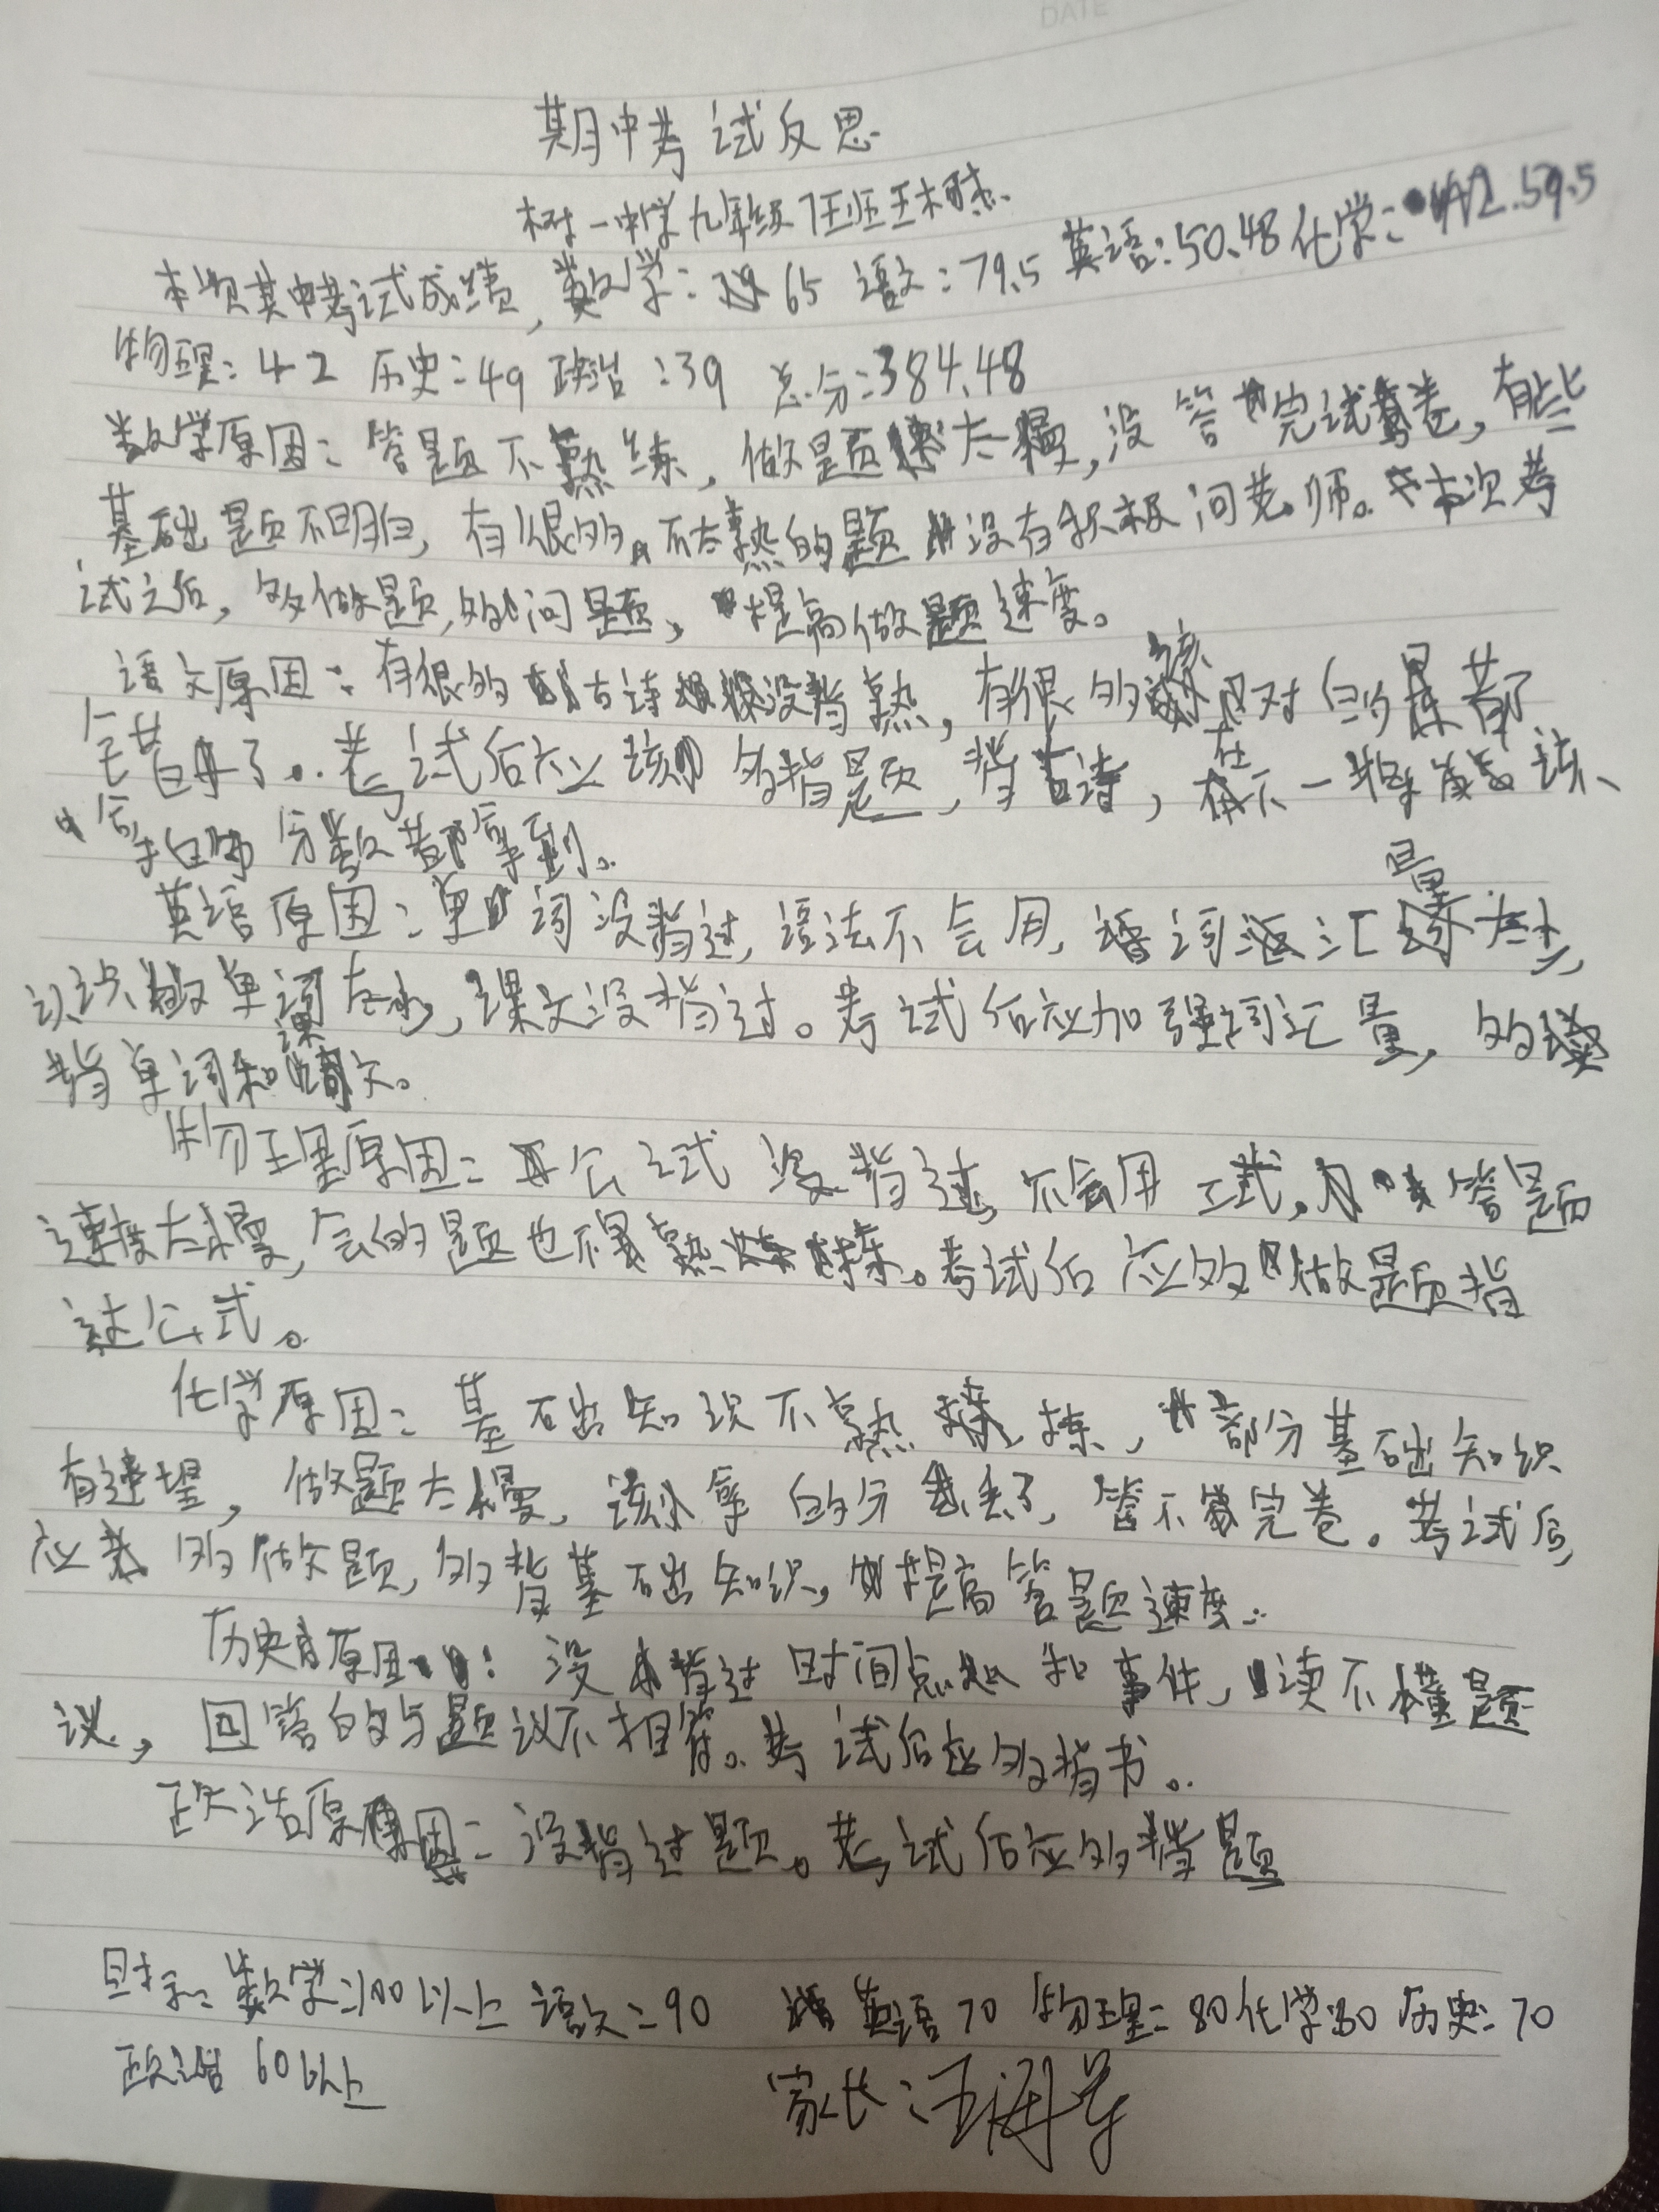 DATE
期中考试反思
一中学九年级7班王
本次其中考试成绩,数学:65 语文:79.5 英语:50.48 化学:59.5
物理:42 历史:49 政治:39 总分:384.48
数学原因:答题不熟练,做题太慢,没答完试卷,有些
基础题不明白,有很多不太熟的题没有积极问老师。本次考
试之后,多做题,多问题,提高做题速度。
语文原因:有很多古诗没背熟,有很多该对的题都
错了。考试后应该多背题,背古诗,在下一次考试该
拿的分数都拿到。
英语原因:单词没背过,语法不会用,词汇量太少,
认识单词太少,课文没背过。考试后应加强词汇量,多
背单词和课文。
物理原因:公式没背过,不会用公式,答题
速度太慢,会的题也不熟练。考试后应多做题背
过公式。
化学原因:基础知识不熟练,部分基础知识
有遗忘,做题太慢,该拿的分丢了,答不完卷。考试后
应多做题,多背基础知识,提高答题速度。
历史原因:没背过时间点和事件,读不懂题
议,回答的与题议不相符。考试后应多背书。
政治原因:没背过题。考试后应多背题
目标:数学:100以上 语文:90 英语70 物理:80 化学:80 历史:70
政治60以上
家长: